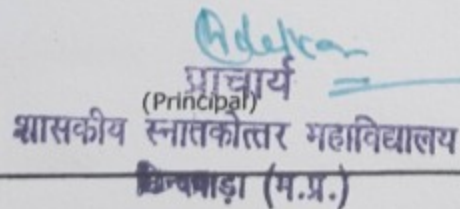 प्राचार्य
(Principal)
शासकीय स्नातकोत्तर महाविद्यालय
(म.प्र.)